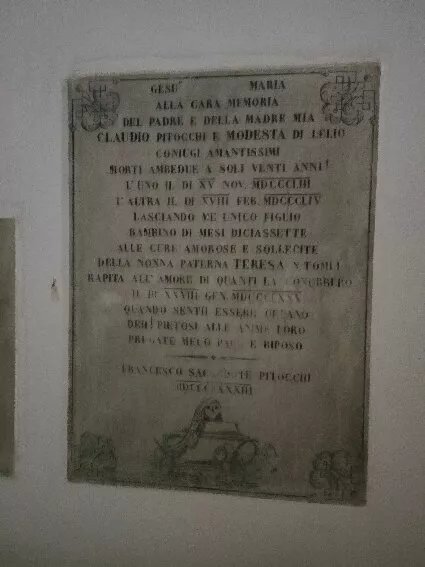 GESU' MARIA
ALLA CARA MEMORIA
DEL PADRE E DELLA MADRE MIA
CLAUDIO PITOCCHI E MODESTA DI LELIO
CONIUGI AMANTISSIMI
MORTI AMBEDUE A SOLI VENTI ANNI!
L'UNO IL DI XV NOV. MDCCCLIII
L'ALTRA IL DI XVIII FEB. MDCCCLIV
LASCIANDO ME UNICO FIGLIO
BAMBINO DI MESI DICIASSETTE
ALLE CURE AMOROSE E SOLLECITE
DELLA NONNA PATERNA TERESA
RAPITA ALL'AMORE DI QUANTI LA CONOBBERO
IL DI XXVIII GEN. MDCCCLXXX
QUANDO SENTII ESSERE ORFANO
DEH! PIETOSI ALLE ANIME LORO
PREGATE MECO PACE E RIPOSO
FRANCESCO SACERDOTE PITOCCHI